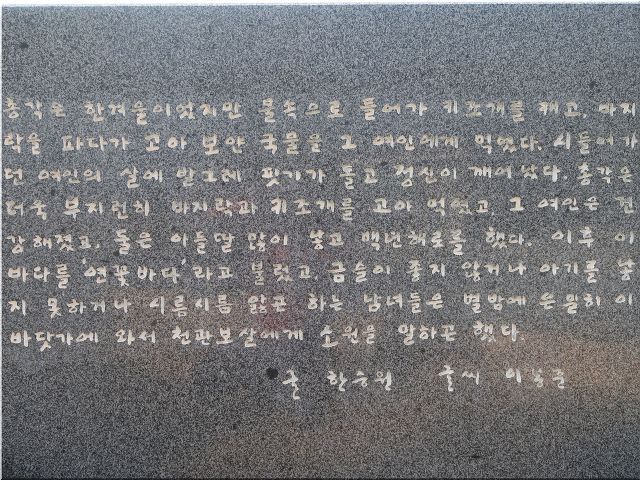 총각은 한겨울이었지만 물속으로 들어가 키조개를 캐고, 바지
락을 파다가 고아 보얀 국물을 그 여인에게 먹였다. 시들어가
던 여인의 살에 발그레 핏기가 돌고 정신이 깨어났다. 총각은
더욱 부지런히 바지락과 키조개를 고아 먹였고, 그 여인은 건
강해졌고, 둘은 아들딸 많이 낳고 백년해로를 했다. 이후 이
바다를 '연꽃바다'라고 불렀고, 금슬이 좋지 않거나 아기를 낳
지 못하거나 시름시름 앓곤 하는 남녀들은 별밤에 은밀히 이
바닷가에 와서 천관보살에게 소원을 말하곤 했다.
글 한승원 글씨 이봉준